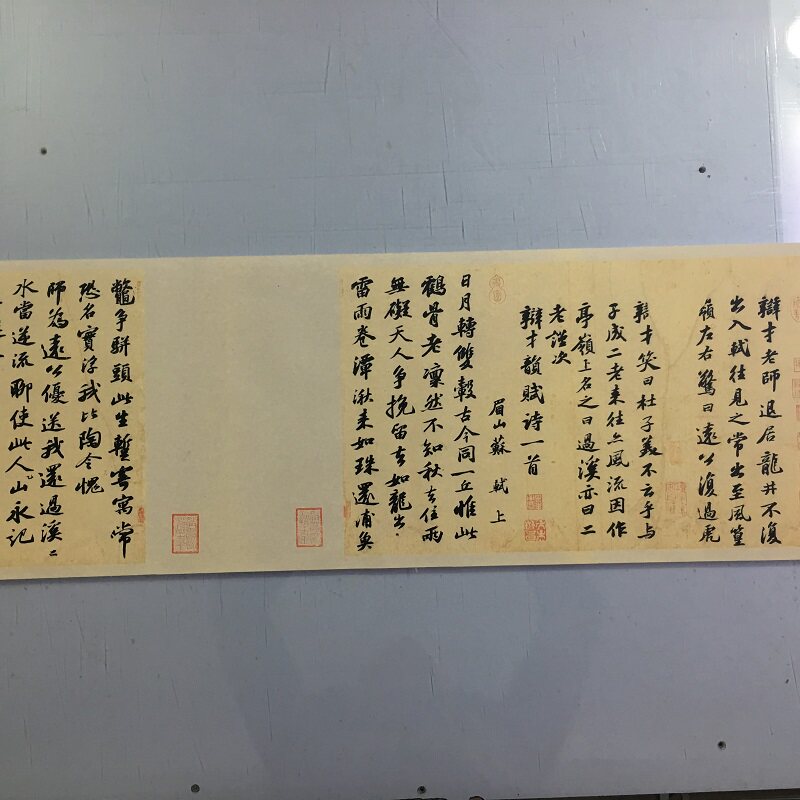 辯才老師退居龍井不復
出入軾往見之常出至風篁
嶺左右驚曰遠公復過虎
辯才笑曰杜子美不云乎与
子成二老来往亦風流因作
亭嶺上名之曰過溪亦曰二
老謹次
辯才韻賦詩一首
眉山蘇軾上
日月轉雙轂古今同一丘惟此
鶴骨老凜然不知秋去住兩
無礙天人争挽留去如龍出
雷雨卷潭湫来如珠還浦魚
鼈争駢頭此生暫寄寓常
恐名實浮我比陶令愧
師為遠公優送我還過溪〻
水當逆流聊使此人山永記